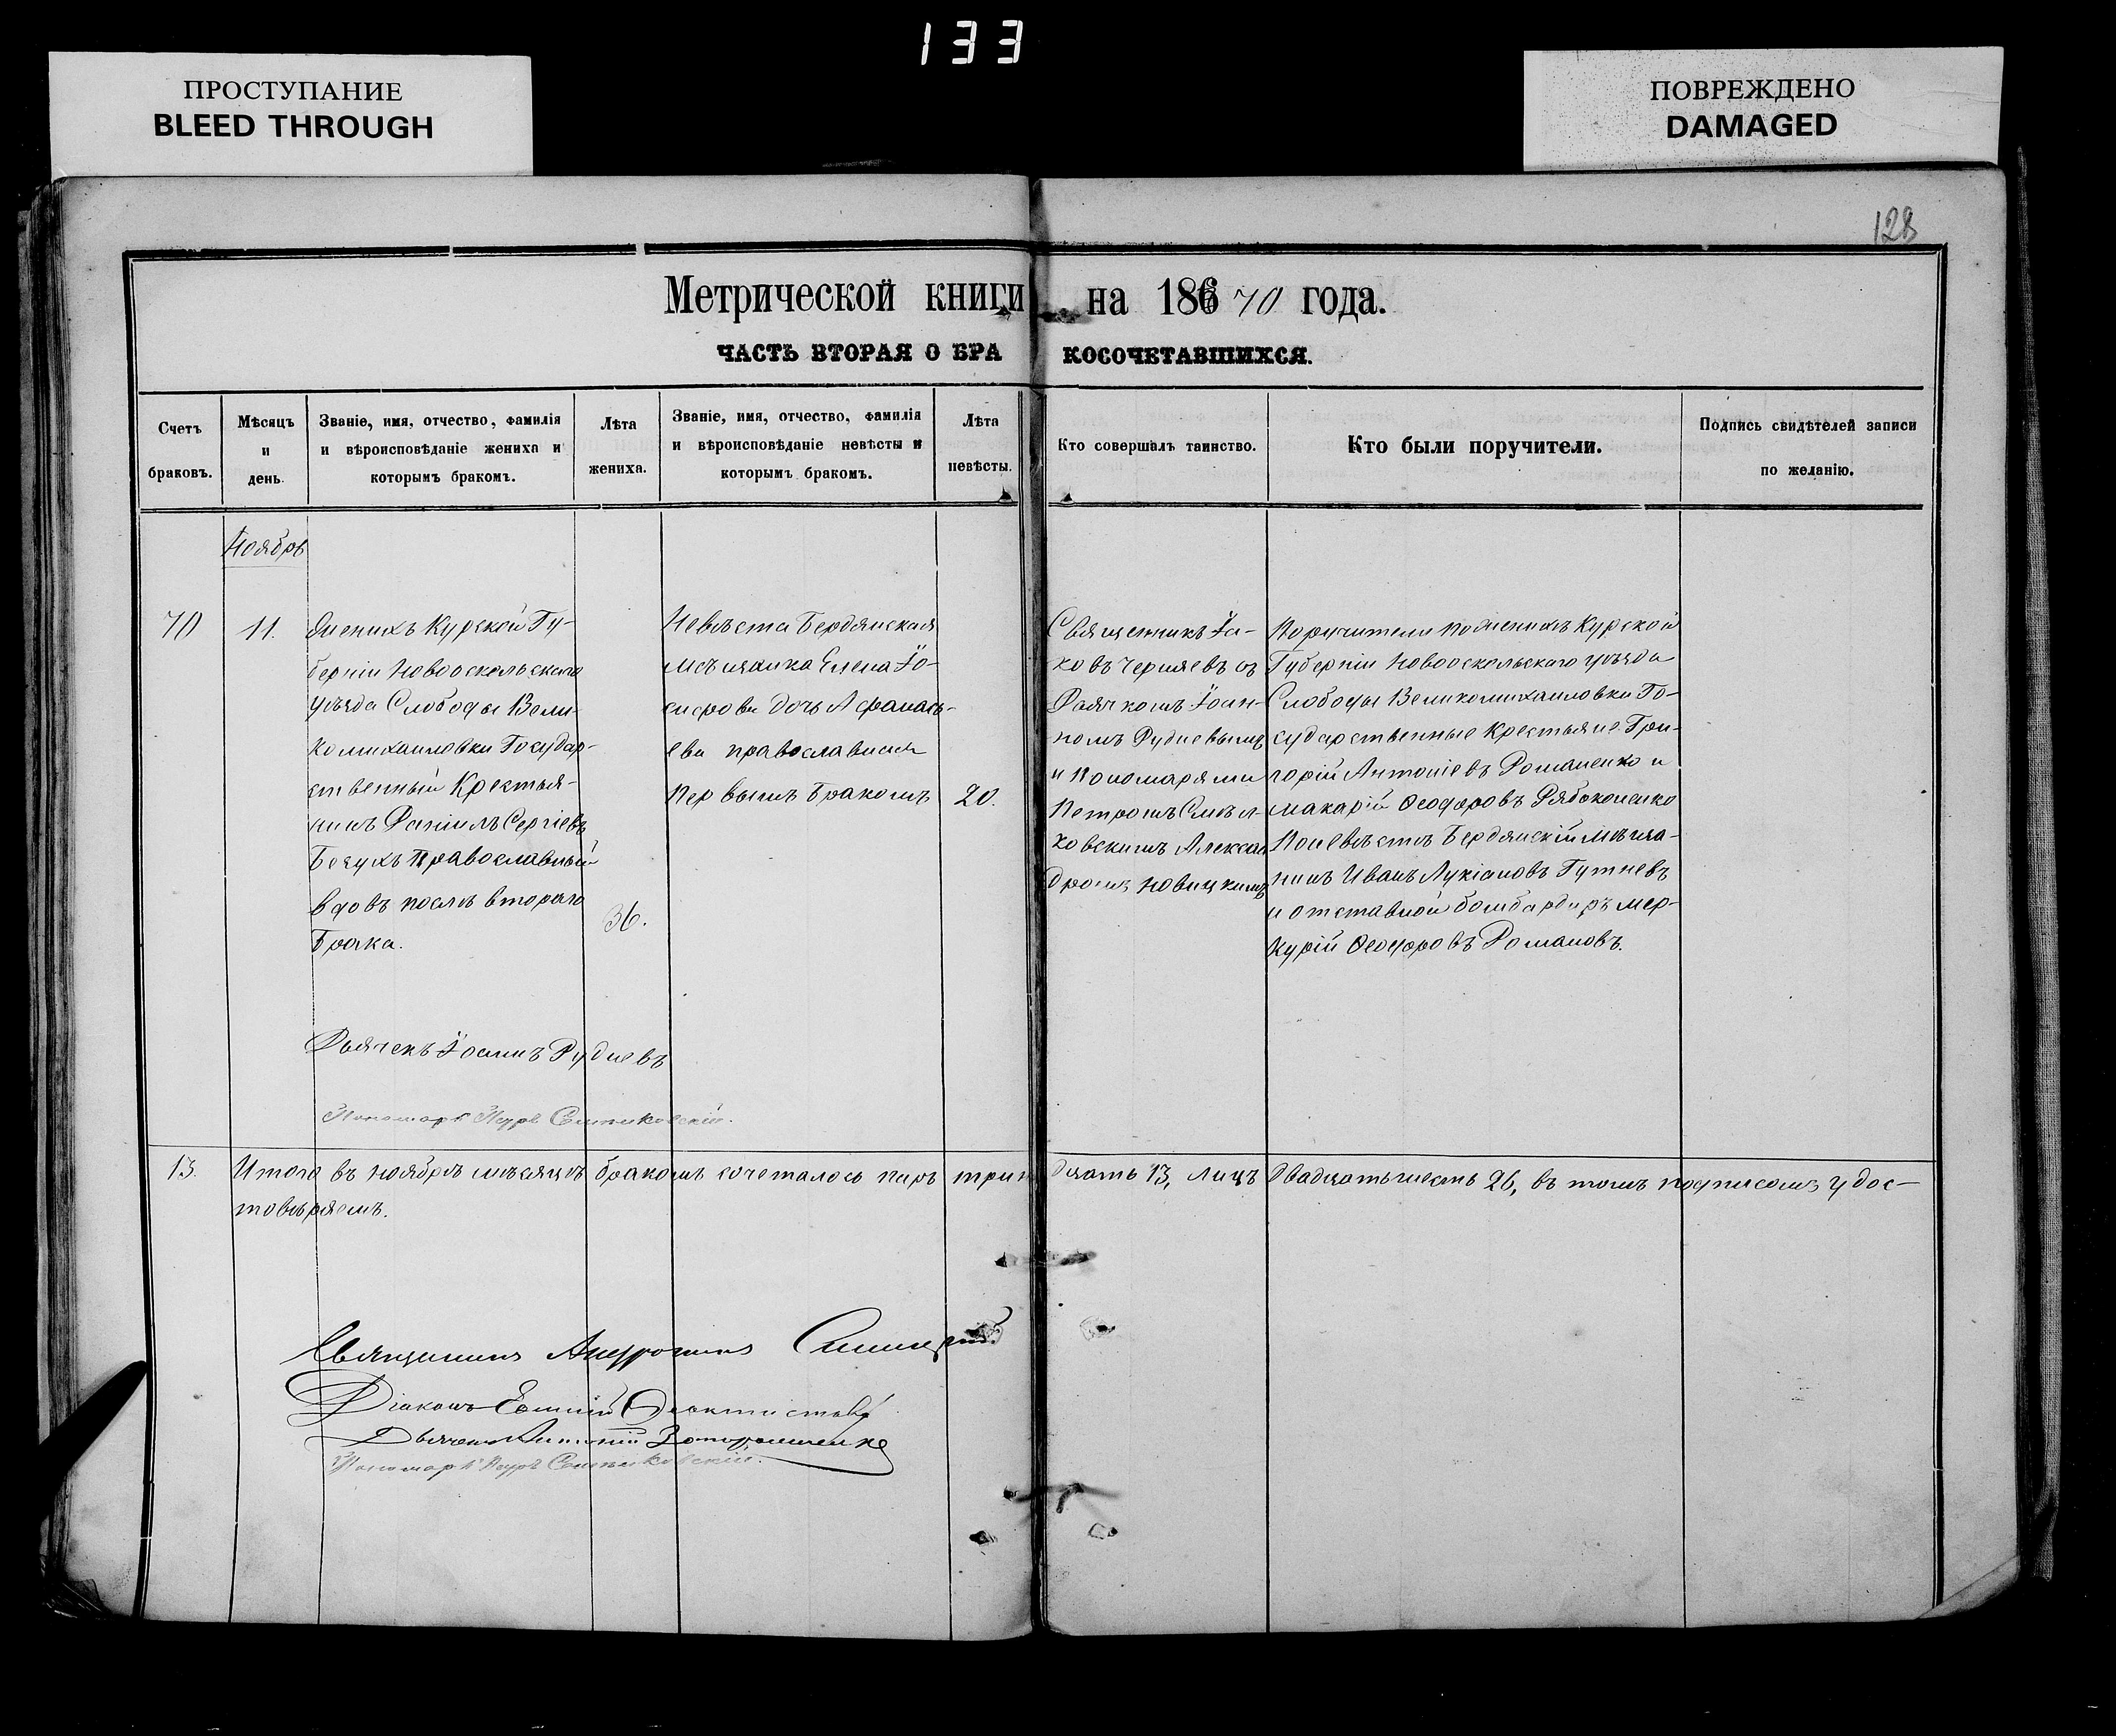 133
ПРОСТУПАНИЕ
BLEED THROUGH
ПОВРЕЖДЕНО
DAMAGED
128
Метрической книги на 186 70 года.
ЧАСТЬ ВТОРАЯ О БРАКОСОЧЕТАВШИХСЯ.
Счетъ
браковъ.
Мѣсяцъ
и
день.
Званіе, имя, отчество, фамилія
и вѣроисповѣданіе жениха и
которымъ бракомъ.
Лѣта
жениха.
Званіе, имя, отчество, фамилія
и вѣроисповѣданіе невѣсты и
которымъ бракомъ.
Лѣта
невѣсты.
Кто совершалъ таинство.
Кто были поручители.
Подпись свидѣтелей записи
по желанію.
Ноябрь
70
11.
Женихъ Курской Гу-
берніи Новооскольскаго
уѣзда Слободы Вели-
комихаиловки Государ-
ственный Крестья-
нинъ Даніилъ Сергіевъ
Православный
вдовъ послѣ втораго
Брака.
36.
Невѣста Бердянская
мѣщанка Елена Іо-
сифова дочь Афанась-
ева православная
Первымъ Бракомъ
20.
Священникъ Іа-
ковъ Черняевъ съ
Дьячкомъ Іоан-
номъ Рудневымъ
и Пономарями
Петромъ
Алексан
дромъ Новицкимъ
Поручители по женихѣ Курской
Губерніи Новооскольскаго уѣзда
Слободы Великомихаиловки Го-
сударственные Крестьяне Гри-
горій Антоніевъ Романенко и
Макарій Ѳеодоровъ Рябоконенко
По невѣстѣ Бердянскій мѣща-
нинъ Иванъ Лукіановъ Гутневъ
и отставной бомбардиръ Мер-
курій Ѳеодоровъ Романовъ.
Дьячекъ Іоаннъ Рудневъ
Пономарь Петръ
13.
Итого въ ноябрѣ мѣсяцѣ бракомъ сочеталось паръ трин дцать 13, лицъ Двадцать шесть 26, въ томъ подписомъ удос-
товѣряемъ.
Священникъ Андроникъ
Діаконъ Ѳеоктистовъ
Дьячекъ
Пономарь Петръ